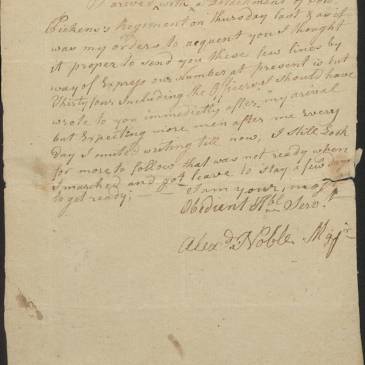 I arived with a Detachment of Col.
Pickens's Regiment on thursday last & as it
was my orders to acquent you I thought
it proper to send you these few lines by
way of Express our number at present is but
thirty four including the Officers I should have
wrote to you immedietly after my arival
but Expecting more men after me Every
day I omited writing till now, I still look
for more to follow that was not ready when
I marched and got leave to stay a few days
to get ready;
I am your, most
Obedient Hble Servt
Alexdr Noble Majr